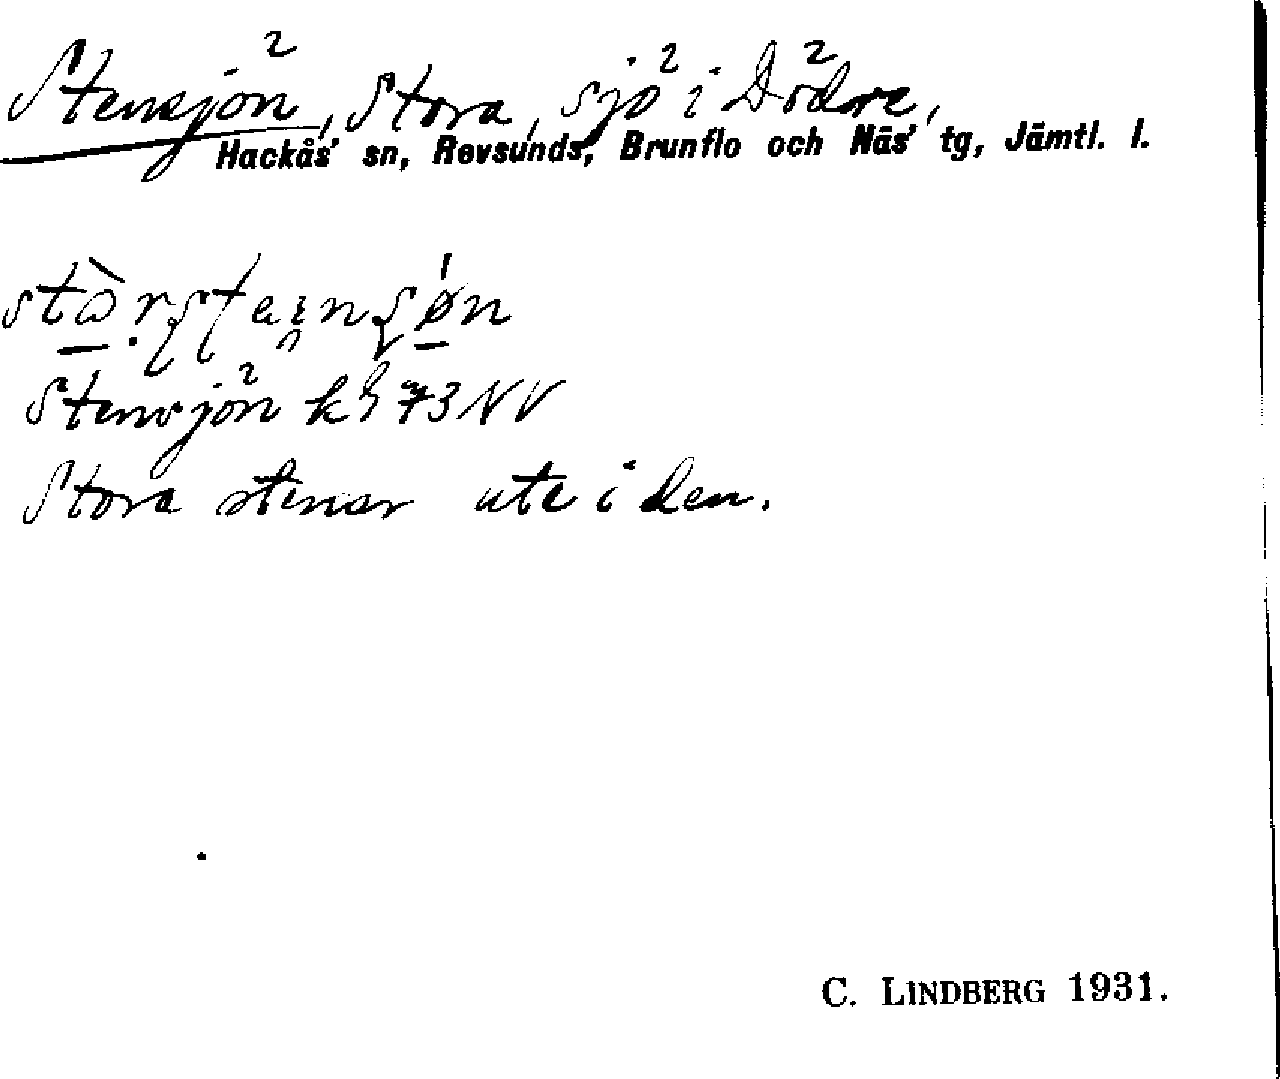 Stensjön, Stora, sjö i Dödre,
Hackås' sn, Revsunds, Brunflo och Näs' tg, Jämtl. l.
Stensjön 73 NV
Stora stenar ute i den.
C. LINDBERG 1931.